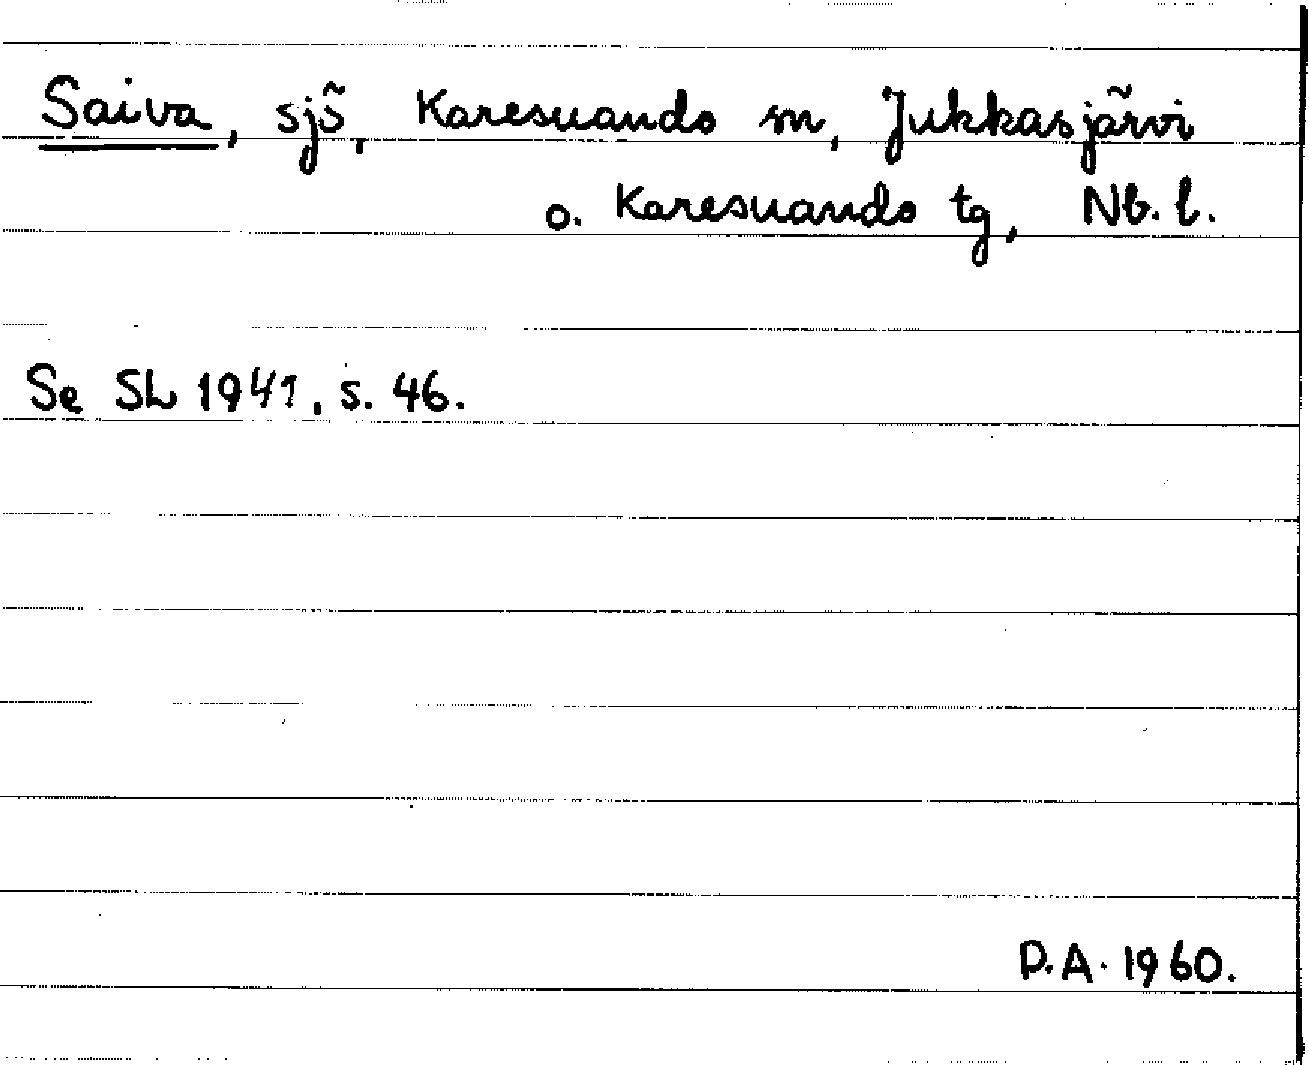 Saiva, sjö, Karesuando sn, Jukkasjärvi
o. Karesuando tg, Nb. l.
Se SL 1941, s. 46.
D.A. 1960.